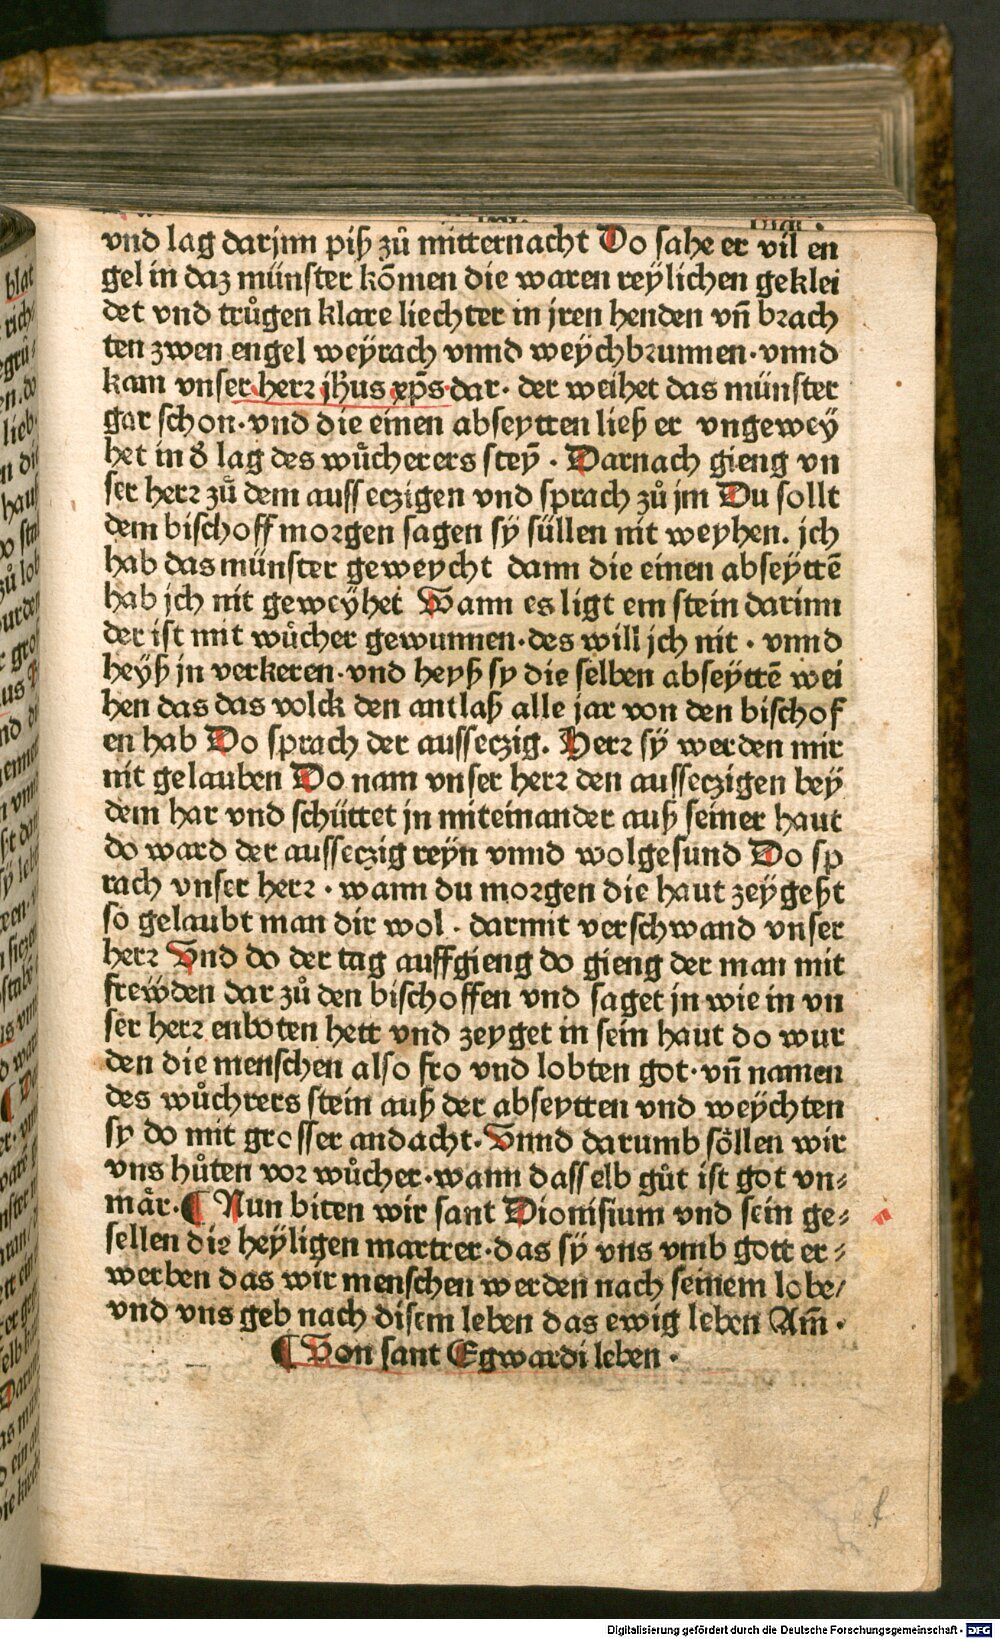 vnd lag darjnn piß zů mitternacht Do sahe er vil en
gel in daz münster kõmen die waren reylichen geklei
det vnd trůgen klare liechter in jren henden vñ brach
ten zwen engel weyrach vnnd weychbrunnen · vnnd
kam vnser herr jhũs xp̃s dar · der weihet das münster
gar schon · vnd die einen abseytten ließ er vngewey
het in d̕ lag des wůcherers steỹ · Darnach gieng vn
ser herr zů dem ausseczigen vnd sprach zů jm Du sollt
dem bischoff morgen sagen sy süllen nit weyhen. jch
hab das münster geweycht dann die einen abseyttẽ
hab jch nit geweyhet Wann es ligt ein stein darinn
der ist mit wůcher gewunnen · des will jch nit · vnnd
heyß in verkeren · vnd heyß sy die selben abseyttẽ wei
hen das das volck den antlaß alle jar von den bischof
en hab Do sprach der ausseczig. Herr sy werden mir
nit gelauben Do nam vnser herr den ausseczigen bey
dem har vnd schüttet jn miteinander auß seiner haut
do ward der ausseczig reyn vnnd wolgesund Do sp
rach vnser herr · wann du morgen die haut zeygeßt
so gelaubt man dir wol · darmit verschwand vnser
herr Vnd do der tag auffgieng do gieng der man mit
freẅden dar zů den bischoffen vnd saget jn wie in vn
ser herr enboten hett vnd zeyget in sein haut do wur
den die menschen also fro vnd lobten got · vñ namen
des wůchrers stein auß der abseytten vnd weychten
sy do mit grosser andacht · Vnnd darumb söllen wir
vns hůten vor wůcher · wann dasselb gůt ist got vn⸗
mår · ¶ Nun biten wir sant Dionisium vnd sein ge⸗
sellen die heyligen martrer · das sy vns vmb gott er⸗
werben das wir menschen werden nach seinem lobe/
vnd vns geb nach disem leben das ewig leben Am̃ ·
¶ Von sant Egwardi leben ·
Digitalisierung gefördert durch die Deutsche Forschungsgemeinschaft - DFG